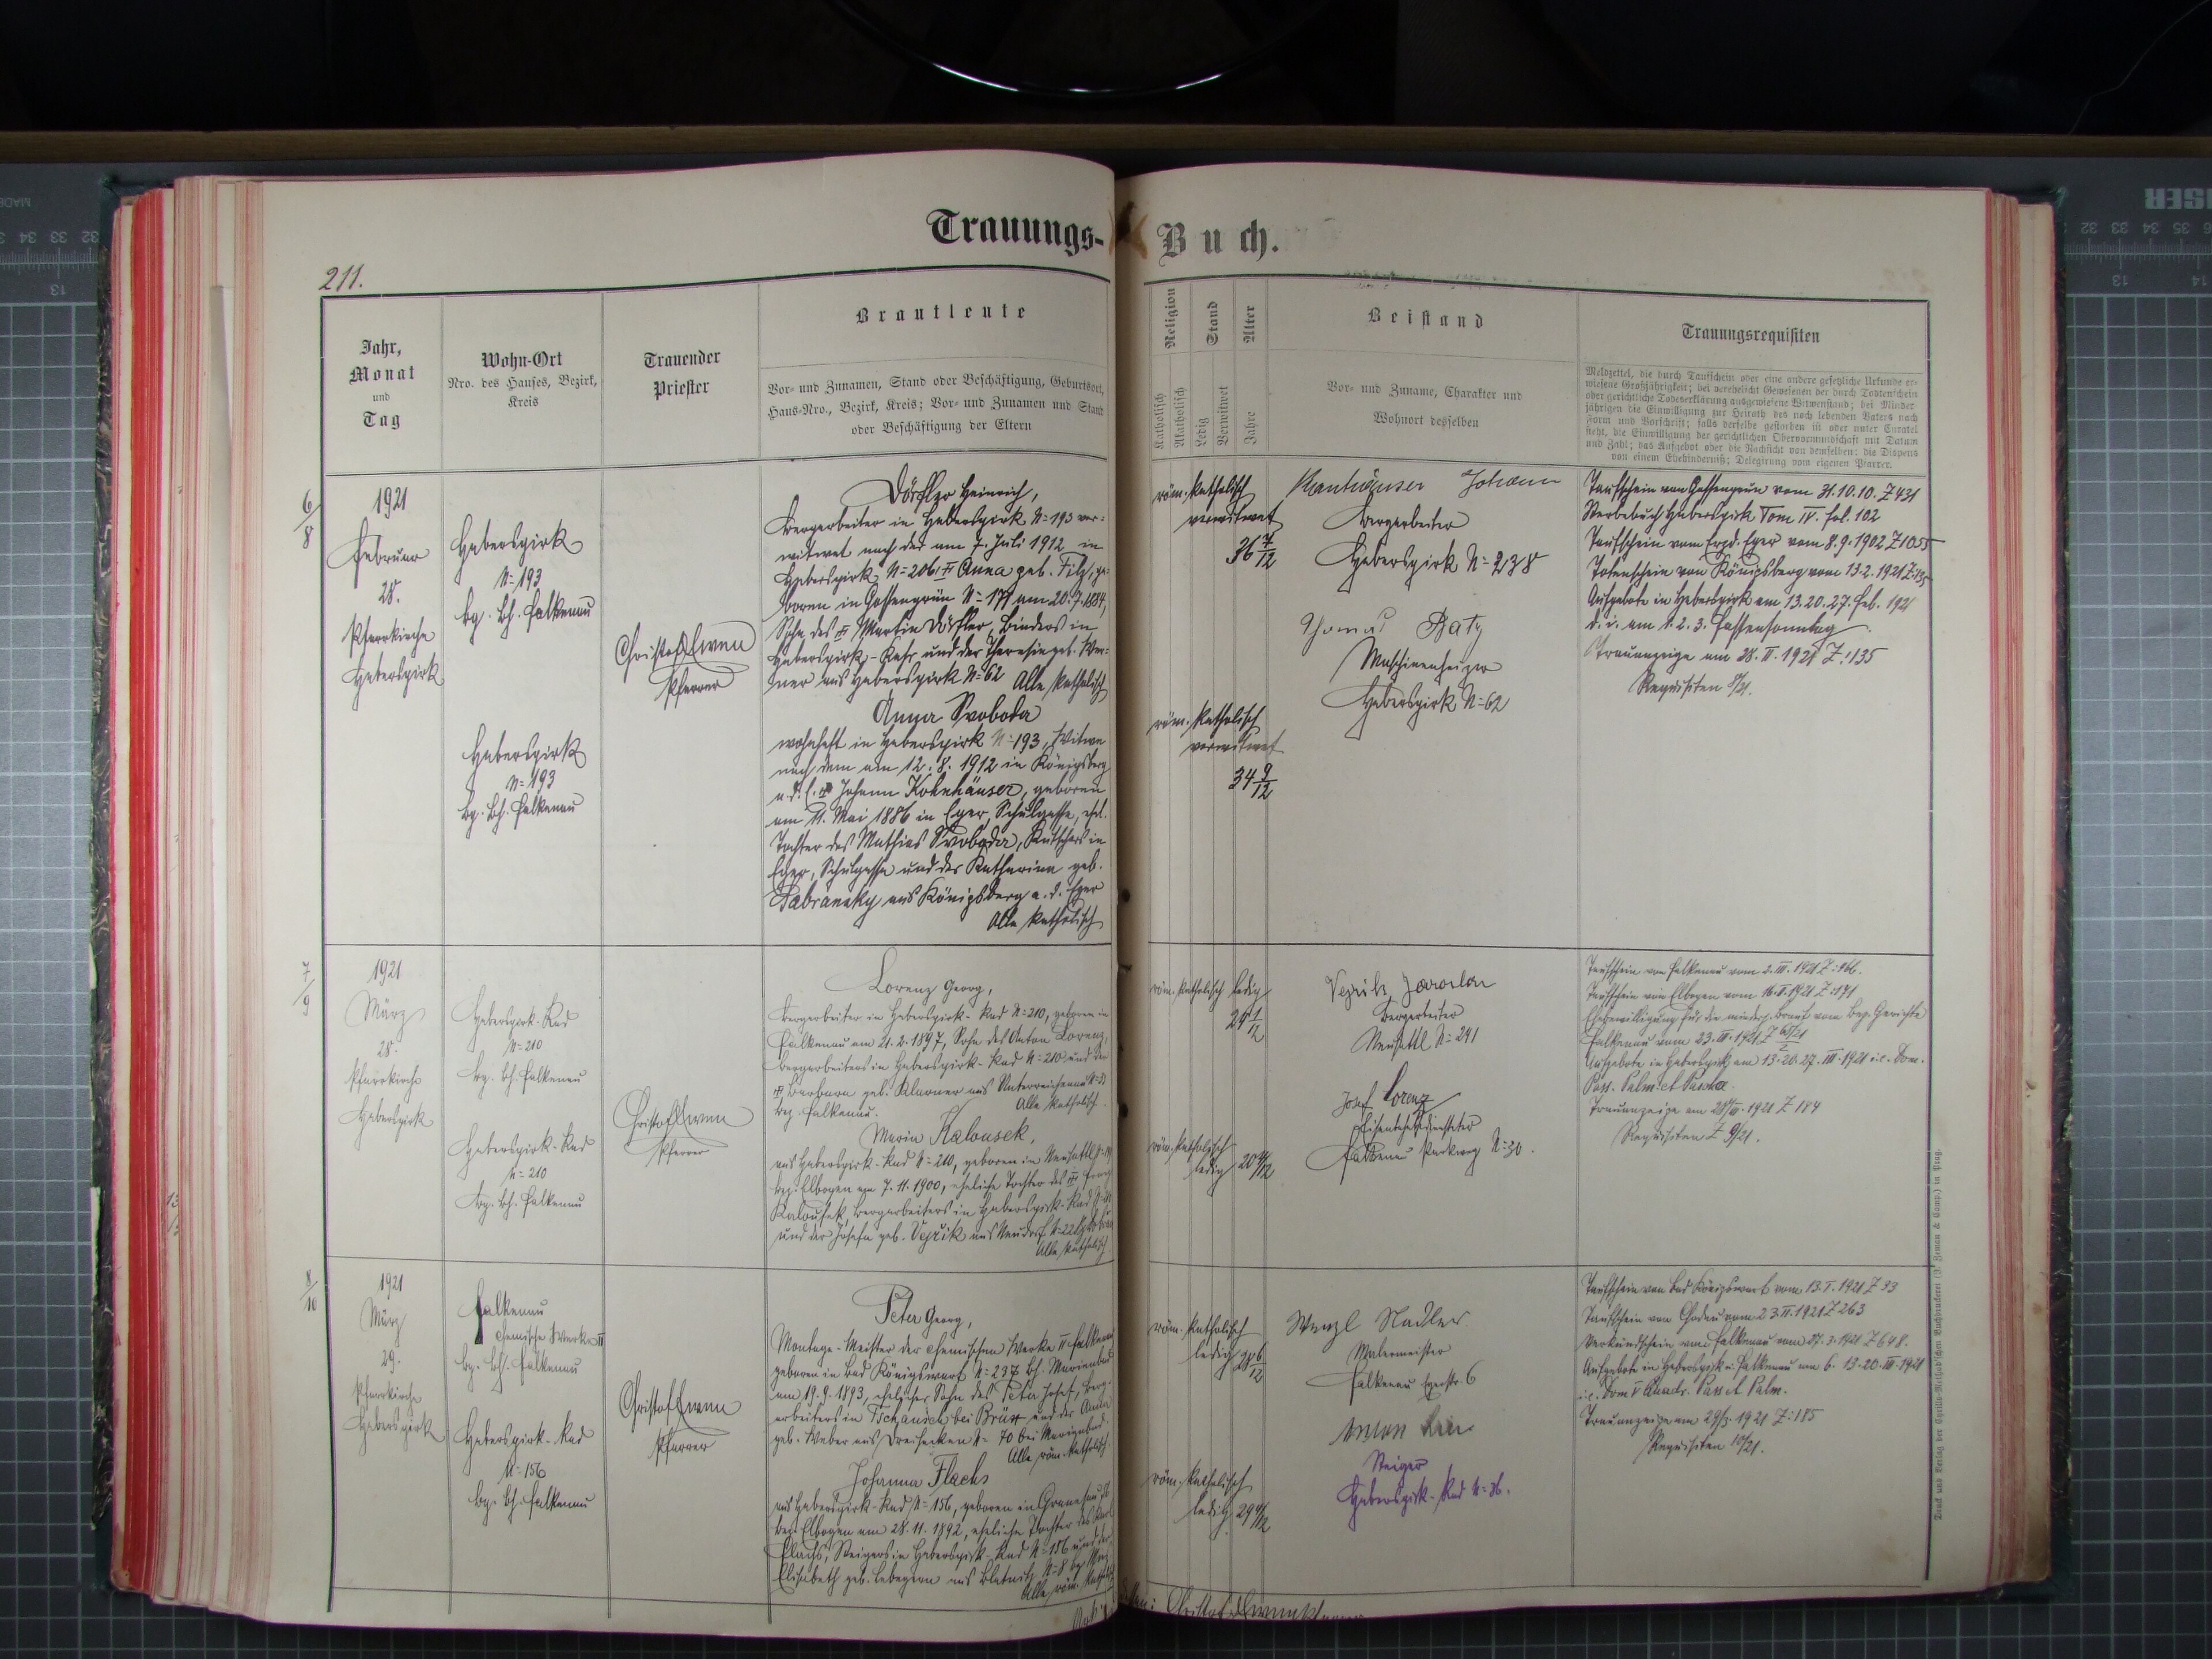 Trauungs-
Buch.
211.
Jahr,
Monat
und
Tag
Wohn-Ort
Nro. des Hauses, Bezirk,
Kreis
Trauender
Priester
Brautleute
Vor- und Zunamen, Stand oder Beschäftigung, Geburtsort,
Haus-Nro., Bezirk, Kreis; Vor- und Zunamen und Stand
oder Beschäftigung der Eltern
Religion
Katholisch
Akatholisch
Stand
Ledig
Verwitwet
Alter
Jahre
Beistand
Vor- und Zuname, Charakter und
Wohnort desselben
Trauungsrequisiten
Meldzettel, die durch Taufschein oder eine andere gesetzliche Urkunde er-
wiesene Großjährigkeit; bei verehelicht Gewesenen der durch Todtenschein
oder gerichtliche Todeserklärung ausgewiesene Witwenstand; bei Minder
jährigen die Einwilligung zur Heirath des noch lebenden Vaters nach
Form und Vorschrift; falls derselbe gestorben ist oder unter Curatel
steht, die Einwilligung der gerichtlichen Obervormundschaft mit Datum
und Zahl; das Aufgebot oder die Nachsicht von demselben; die Dispens
von einem Ehehinderniß; Delegirung vom eigenen Pfarrer.
6/8
1921
Februar
28.
Pfarrkirche
Haberspirk
Haberspirk
N= 193
bz. bh. Falkenau
Haberspirk
N= 193
bz. bh. Falkenau
Christof
Pfarrer
Dörfler Heinrich,
Bergarbeiter in Haberspirk N= 193 ver-
witwet nach der am 7. Juli 1912 in
Haberspirk N= 206 Anna geb. Filz, ge-
boren in Gossengrün N= 177 am 20.7.1884,
Sohn des Martin Dörfler, Binders in
Haberspirk und der Theresia geb. Wer-
ner aus Haberspirk N= 62 Alle katholisch
Anna Svoboda
wohnhaft in Haberspirk N= 193, Witwe
nach dem am 12.8.1912 in Königsberg
a. d. E. Johann Kohnhäuser, geboren
am 11. Mai 1886 in Eger, Schulgasse, ehel.
Tochter des Mathias Svoboda, Kutschers in
Eger, Schulgasse und der Katharina geb.
aus Königsberg a. d. Eger
Alle katholisch
röm. katholisch
verwitwet
36 7/12
röm. katholisch
verwitwet
34 9/12
Johann
Bergarbeiter
Haberspirk N= 238
Thomas Baty
Maschinenheizer
Haberspirk N= 62
Taufschein von Gossengrün vom 31.10.10. Z 431
Sterbebuch Haberspirk Tom IV. fol. 102
Taufschein vom Erzd. Eger vom 8.9.1902 Z 1055
Totenschein von Königsberg vom 13.2.1921 Z:
Aufgebote in Haberspirk am 13.20.27. Feb. 1921
d. i. am 1. 2. 3. Fastensonntag
Trauanzeige am 28. II. 1921 Z: 135
Requisiten 8/21.
7/9
1921
März
28.
Pfarrkirche
Haberspirk
Haberspirk-Rad
N= 210
bz. bh. Falkenau
Haberspirk-Rad
N= 210
bz. bh. Falkenau
Christof
Pfarrer
Lorenz Georg,
Bergarbeiter in Haberspirk-Rad N= 210, geboren in
Falkenau am 21.2.1897, Sohn des Anton Lorenz,
Bergarbeiters in Haberspirk-Rad N= 210 und der
Barbara geb. Klarner aus Unterreichenau
bez. Falkenau. Alle katholisch.
Maria Kalousek,
aus Haberspirk-Rad N= 210, geboren in Neusattl
bez. Elbogen am 7.11.1900, eheliche Tochter des
Kalousek, Bergarbeiters in Haberspirk-Rad
und der Josefa geb. Vejrik aus Neudorf
Alle katholisch.
röm. katholisch ledig
24 1/12
röm. katholisch
ledig 20 4/12
Vejrik Jaroslav
Bergarbeiter
Neusattl N= 241
Josef Lorenz
Falkenau Parkweg N= 30.
Taufschein von Falkenau vom 2. III. 1921 Z: 166.
Taufschein von Elbogen vom 16. II. 1921 Z: 171
Ehebewilligung für die minderj. Braut vom Bez. Gerichte
Falkenau vom 23. III. 1921 Z
Aufgebote in Haberspirk am 13.20.27. III. 1921 i.e. Dom.
Pass. Palm. et Pascha.
Trauanzeige am 28/III. 1921 Z 184
Requisiten Z 9/21.
8/10
1921
März
29.
Pfarrkirche
Haberspirk
Falkenau
chemische Werke II
bz. bh. Falkenau
Haberspirk-Rad
N= 156
bz. bh. Falkenau
Christof
Pfarrer
Peter Georg,
Montage-Meister der chemischen Werke II Falkenau
geboren in Bad Königswart N= 237 bh. Marienbad
am 19.9.1893, ehelicher Sohn des Peter Josef, Berg-
arbeiters in Tschausch bei Brüx und der Anna
geb. Weber aus Dreihacken N= 70 bei Marienbad.
Alle röm. katholisch.
Johanna Flachs
aus Haberspirk-Rad N= 156, geboren in Granesau
bez. Elbogen am 28.11.1892, eheliche Tochter des Karl
Flachs, Steigers in Haberspirk-Rad N= 156 und der
Elisabeth geb. aus N= 8 bz.
Alle röm. kathol.
röm. katholisch
ledig 28 6/12
röm. katholisch
ledig 29 4/12
Wenzl Stadler
Malermeister
Falkenau Egerstr. 6
Anton
Steiger
Haberspirk-Rad N= 36.
Taufschein von Bad Königswart vom 13. I. 1921 Z 93
Taufschein von Chodau vom 23. II. 1921 Z 263
Verkündschein von Falkenau vom 27.3.1921 Z 648.
Aufgebote in Haberspirk u. Falkenau am 6. 13. 20. III. 1921
i.e. Dom IV Quadr. Pass et Palm.
Trauanzeige am 29/3. 1921 Z: 185
Requisiten 10/21.
Druck und Verlag der Cyrillo-Method'schen Buchdruckerei (J. Zeman & Comp.) in Prag.